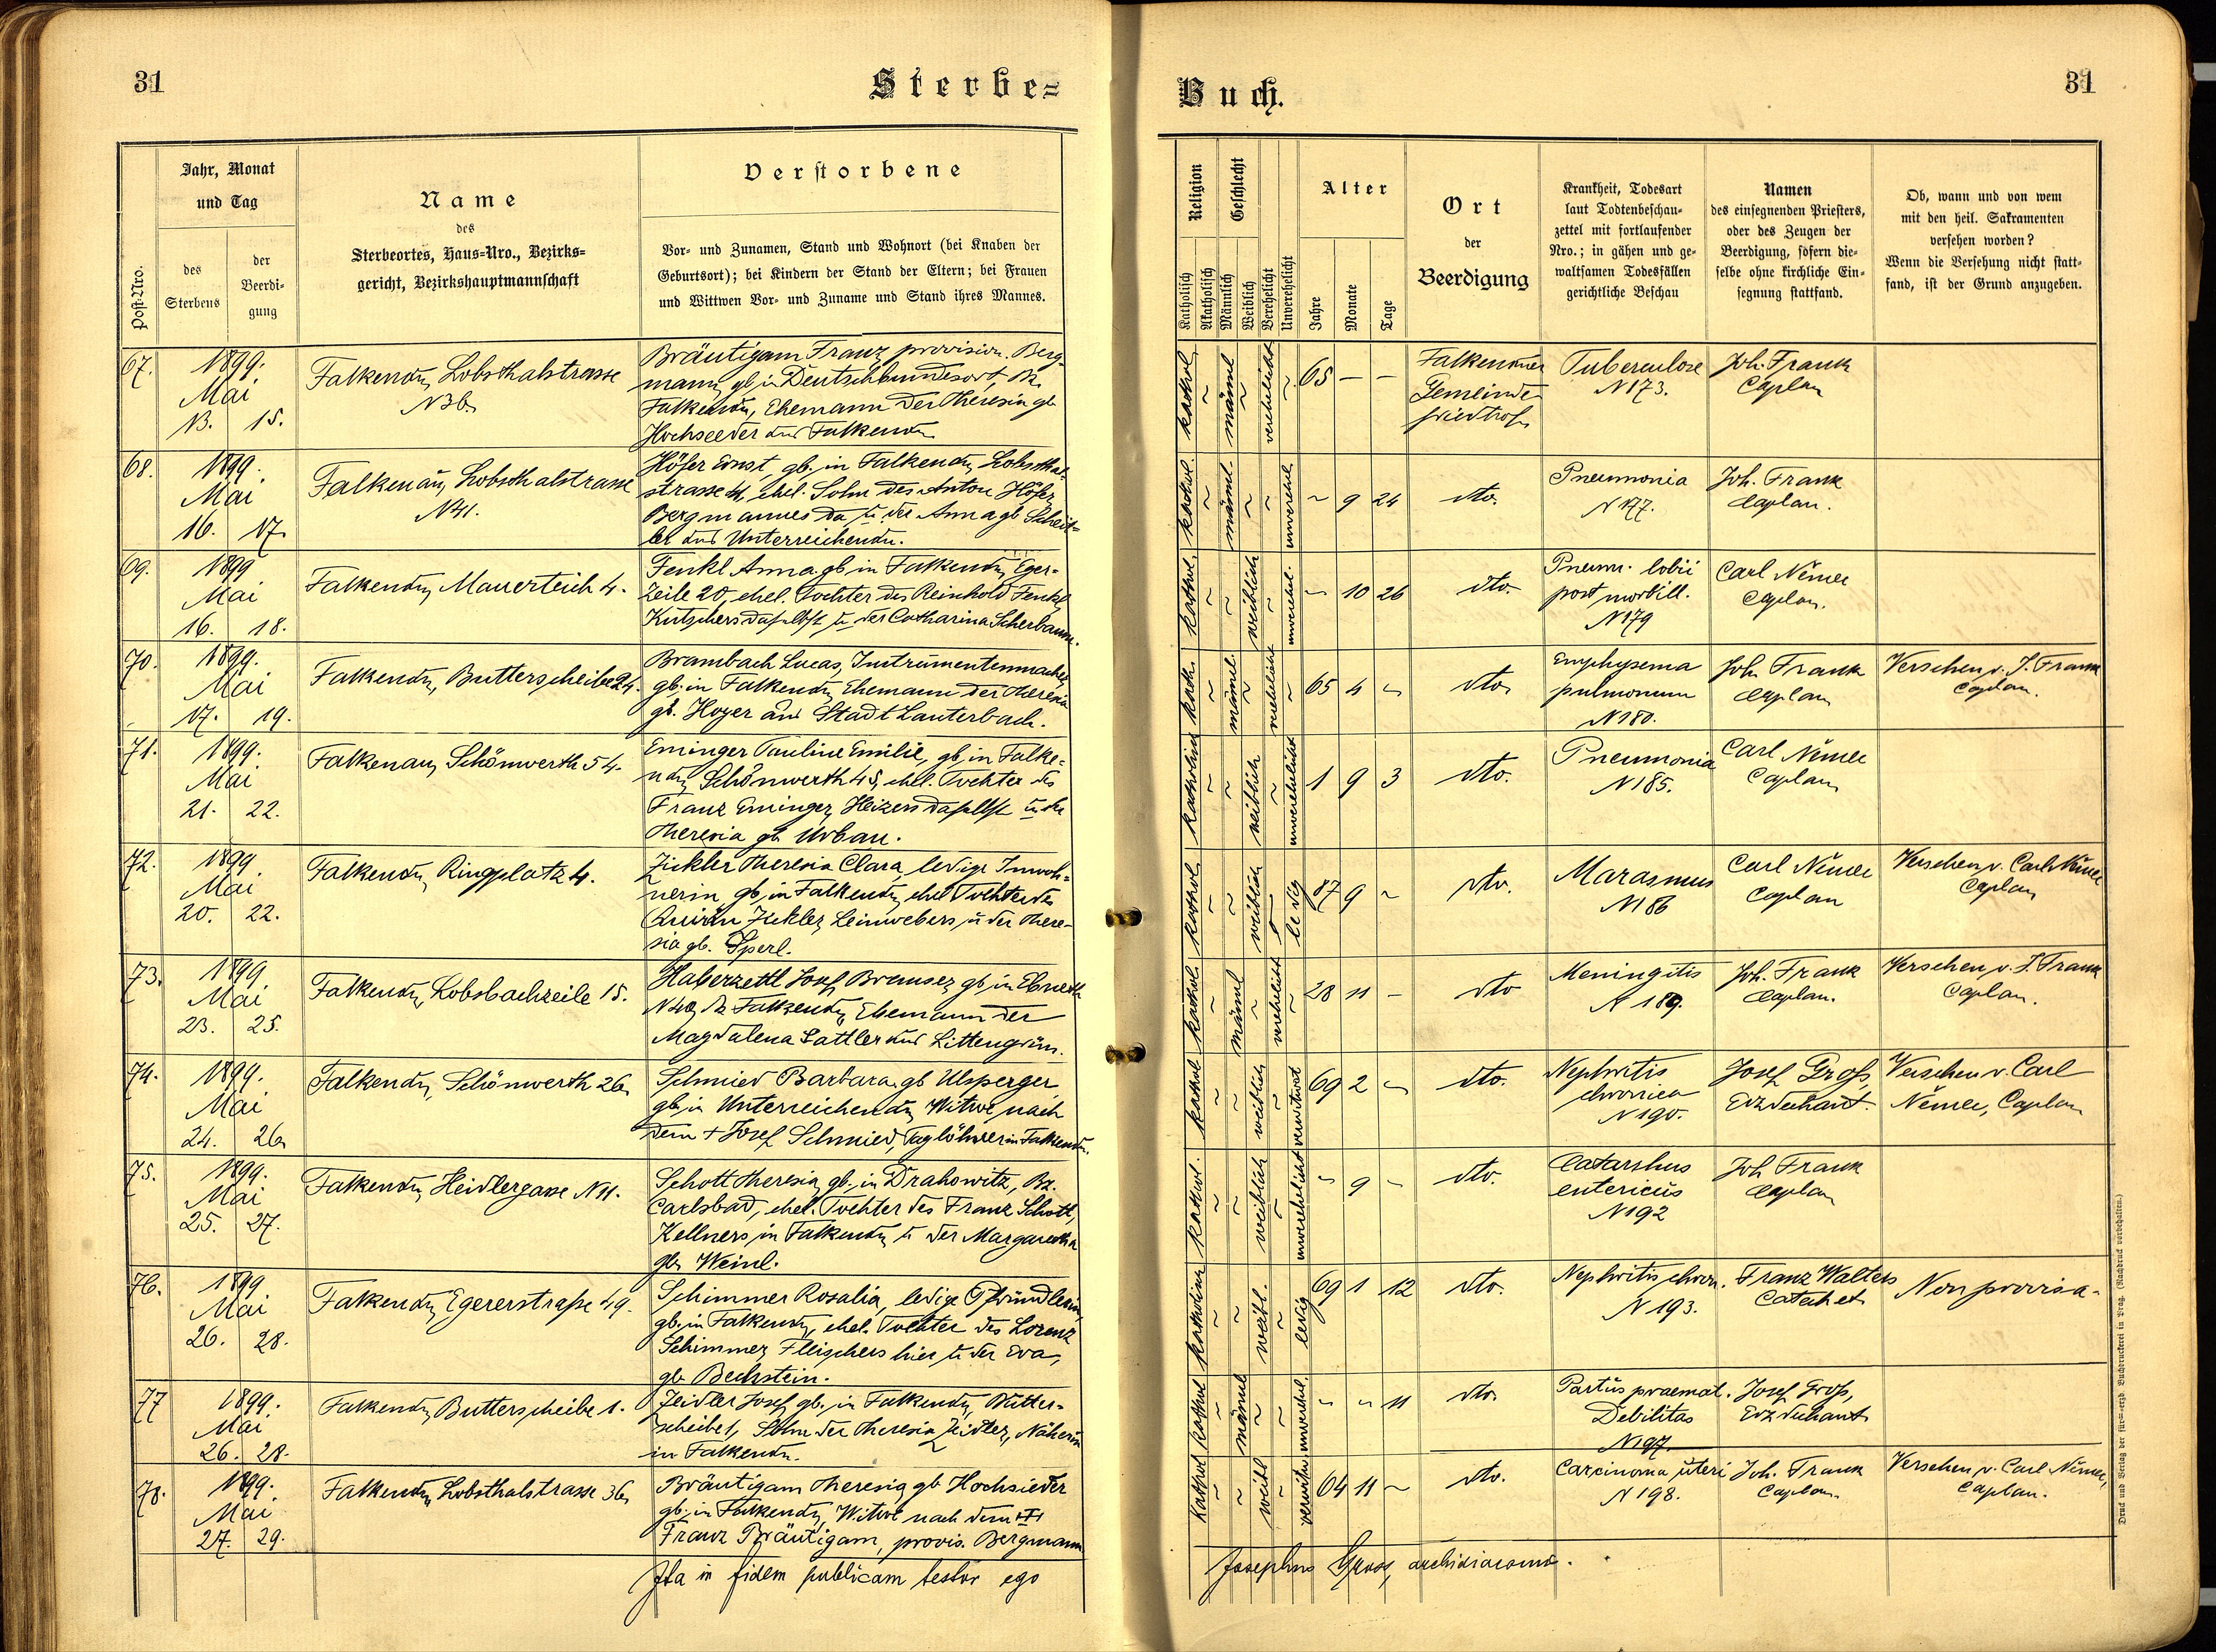 31
Sterbe=
Post-Nro.
Jahr, Monat
und Tag
des
Sterbens
der
Beerdi=
gung
Name
des
Sterbeortes, Haus=Nro., Bezirks=
gericht, Bezirkshauptmannschaft
Verstorbene
Vor= und Zunamen, Stand und Wohnort (bei Knaben der
Geburtsort); bei Kindern der Stand der Eltern; bei Frauen
und Wittwen Vor= und Zuname und Stand ihres Mannes.
67.
1899.
Mai
13. 15.
Falkenau, Lobsthalstrasse
N 36.
Bräutigam Franz, provision. Berg
mann, gb. in Deutschbundesort, Bz.
Falkenau, Ehemann der Theresia gb
Hochseeder aus Falkenau
68.
1899.
Mai
16. 17.
Falkenau, Lobsthalstrasse
N 41.
Höfer Ernst, gb. in Falkenau, Lobsthal=
strasse 41, ehel. Sohn des Anton Höfer
Bergmannes da u. der Anna gb Scheit=
ler aus Unterreichenau.
69.
1899
Mai
16. 18.
Falkenau, Mauerteich 4.
Fenkl Anna gb in Falkenau Eger=
zeile 20, ehel. Tochter des Reinhold Fenkl,
Kutschers daselbst u. der Catharina Scherbaum.
70.
1899.
Mai
17. 19.
Falkenau, Butterscheibe 24.
Brambach Lucas, Instrumentenmacher,
gb. in Falkenau Ehemann der Theresia
gb. Hoyer aus Stadt Lauterbach.
71.
1899.
Mai
21. 22.
Falkenau, Schönwerth 54.
Eminger Pauline Emilie, gb. in Falke=
nau, Schönwerth 45, ehel. Tochter des
Franz Eminger, Heizers daselbst u. der
Theresia gb Urban.
72.
1899
Mai
20. 22.
Falkenau, Ringplatz 4.
Zickler Theresia Clara, ledige Inwoh=
nerin, gb. in Falkenau, ehel Tochter des
Quirin Zickler, Leinwebers, u der There=
sia gb. Sperl.
73.
1899
Mai
23. 25.
Falkenau, Lobsbachzeile 15.
Haberzettl Josef, Brenner, gb. in Ebmeth
N 40, Bz Falkenau, Ehemann der
Magdalena Sattler aus Littengrün.
74.
1899.
Mai
24. 26.
Falkenau, Schönwerth 26.
Schmied Barbara, gb Ulsperger
gb. in Unterreichenau, Witwe nach
dem + Josef Schmied, Taglöhner in Falkenau.
75.
1899.
Mai
25. 27.
Falkenau, Heidlergasse N 11.
Schott Theresia, gb. in Drahowitz, Bz.
Carlsbad, ehel. Tochter des Franz Schott,
Kellners in Falkenau, u der Margaretha
gb. Weinl.
76.
1899
Mai
26. 28.
Falkenau, Egererstraße 49.
Schimmer Rosalia, ledige Pfründlerin,
gb. in Falkenau, ehel. Tochter des Lorenz
Schimmer, Fleischers hier u der Eva,
gb. Bechstein.
77
1899.
Mai
26. 28.
Falkenau, Butterscheibe 1.
Zeidler Josef gb. in Falkenau, Butter=
scheibe 1, Sohn der Theresia Zeidler, Näherin
in Falkenau.
78.
1899.
Mai
27. 29.
Falkenau, Lobsthalstrasse 36.
Bräutigam Theresia, gb. Hochsieder
gb. in Falkenau, Witwe nach dem
Franz Bräutigam, provis. Bergmann
Ita in fidem publicam testor ego
Buch.
31
Religion
Geschlecht
Katholisch
Akatholisch
Männlich
Weiblich
Verehelicht
Unverehelicht
Alter
Jahre
Monate
Tage
Ort
der
Beerdigung
Krankheit, Todesart
laut Todtenbeschau=
zettel mit fortlaufender
Nro.; in gähen und ge=
waltsamen Todesfällen
gerichtliche Beschau
Namen
des einsegnenden Priesters,
oder des Zeugen der
Beerdigung, sofern die=
selbe ohne kirchliche Ein=
segnung stattfand.
Ob, wann und von wem
mit den heil. Sakramenten
versehen worden?
Wenn die Versehung nicht statt=
fand, ist der Grund anzugeben.
kathol. männl verehelicht 65 – –
Falkenauer
Gemeinde
friedhof
Tuberculose
N 173.
Joh. Frank
Caplan
kathol. männl. unverehel. ~ 9 24
dto.
Pneumonia
N 177.
Joh. Frank
Caplan.
kathol. weiblich unverehel. ~ 10 26
dto.
Pneum. lobii
post morbill.
N 179
Carl Němec
Caplan.
kath. männl. verehelicht 65 4 ~
dto.
Emphysema
pulmonum
N 180.
Joh. Frank
Caplan
Versehen v. J. Frank
Caplan.
katholisch weiblich unverehelicht 1 9 3
dto.
Pneumonia
N 185.
Carl Němec
Caplan
kathol. weiblich ledig 87 9 ~
dto.
Marasmus
N 186
Carl Němec
Caplan
Versehen v. Carl Němec
Caplan
kathol. männl verehelicht 28 11 –
dto
Meningitis
N 189.
Joh. Frank
Caplan.
Versehen v. J. Frank
Caplan.
kathol weiblich verwitwet 69 2 ~
dto.
Nephritis
chronica
N 190.
Josef Groß,
Erzdechant.
Versehen v. Carl
Němec, Caplan
kathol. weiblich unverehelicht ~ 9 –
dto.
Catarrhus
entericus
N 192
Joh Frank
Caplan
katholisch weibl. ledig 69 1 12
dto.
Nephritis chron.
N 193.
Franz Walters
Catechet
Non provisa.
kathol männl unverehel. ~ ~ 11
dto.
Partus praemat.
Debilitas
N 197.
Josef Groß,
Erzdechant
kathol weibl verwitw 64 11 ~
dto.
Carcinoma uteri
N 198.
Joh. Frank
Caplan.
Versehen v. Carl Němec,
Caplan.
Josephus Gross, archidiaconus.
Druck und Verlag der fürst=erzb. Buchdruckerei in Prag. (Nachdruck vorbehalten.)